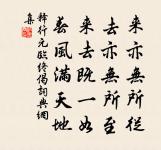 來亦無所從
去亦無所至
來去既一如
春風滿天地
釋行元臨終偈詞典網
集